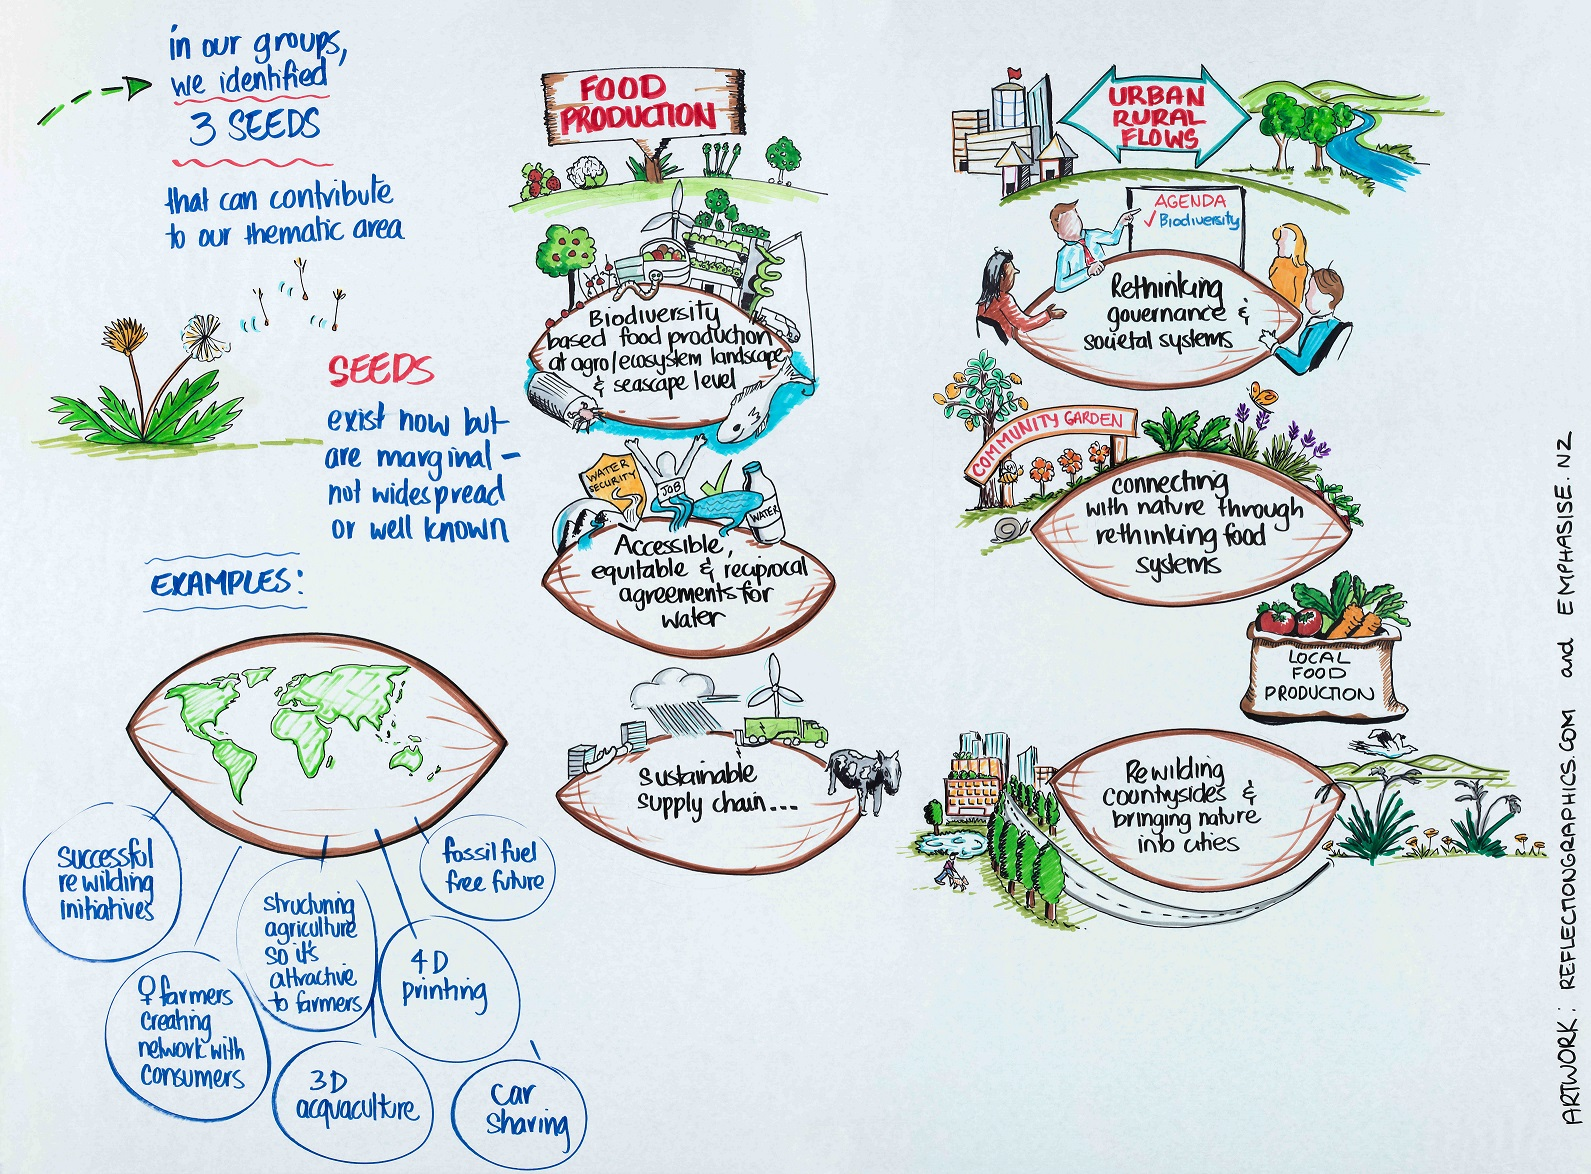 in our groups,
we identified
3 SEEDS
that can contribute
to our thematic area
SEEDS
exist now but
are marginal -
not widespread
or well known
EXAMPLES:
successful
rewilding
initiatives
♀ farmers
creating
network with
consumers
structuring
agriculture
so it's
attractive
to farmers
3D
acquaculture
4D
printing
fossil fuel
free future
car
sharing
FOOD
PRODUCTION
Biodiversity
based food production
at agro/ecosystem landscape
& seascape level
WATER
SECURITY
JOB
WATER
Accessible,
equitable & reciprocal
agreements for
water
Sustainable
supply chain...
URBAN
RURAL
FLOWS
AGENDA
✓ Biodiversity
Rethinking
governance &
societal systems
COMMUNITY GARDEN
connecting
with nature through
rethinking food
systems
LOCAL
FOOD
PRODUCTION
Rewilding
countrysides &
bringing nature
into cities
ARTWORK: REFLECTIONGRAPHICS.COM and EMPHASISE.NZ